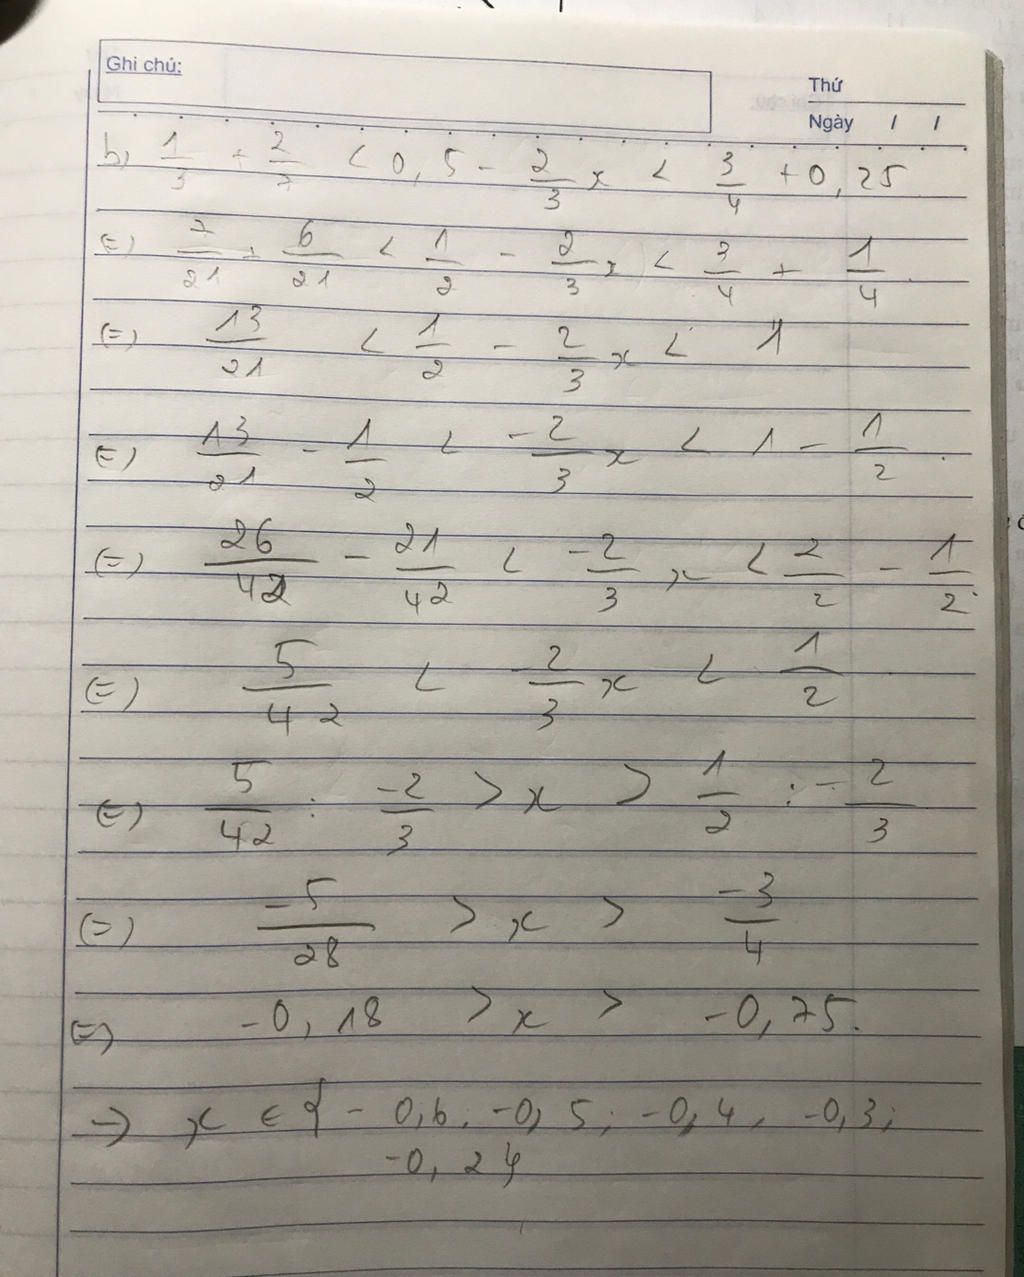 Ghi chú:
Thứ
Ngày / /
b, 1/3 + 2/7 < 0,5 - 2/3 x < 3/4 + 0,25
(=) 7/21 + 6/21 < 1/2 - 2/3 x < 3/4 + 1/4
(=) 13/21 < 1/2 - 2/3 x < 1
(=) 13/21 - 1/2 < -2/3 x < 1 - 1/2
(=) 26/42 - 21/42 < -2/3 x < 2/2 - 1/2
(=) 5/42 < -2/3 x < 1/2
(=) 5/42 : -2/3 > x > 1/2 : -2/3
(=) -5/28 > x > -3/4
(=) -0,18 > x > -0,75.
=> x ∈ { -0,6; -0,5; -0,4; -0,3;
-0,2}